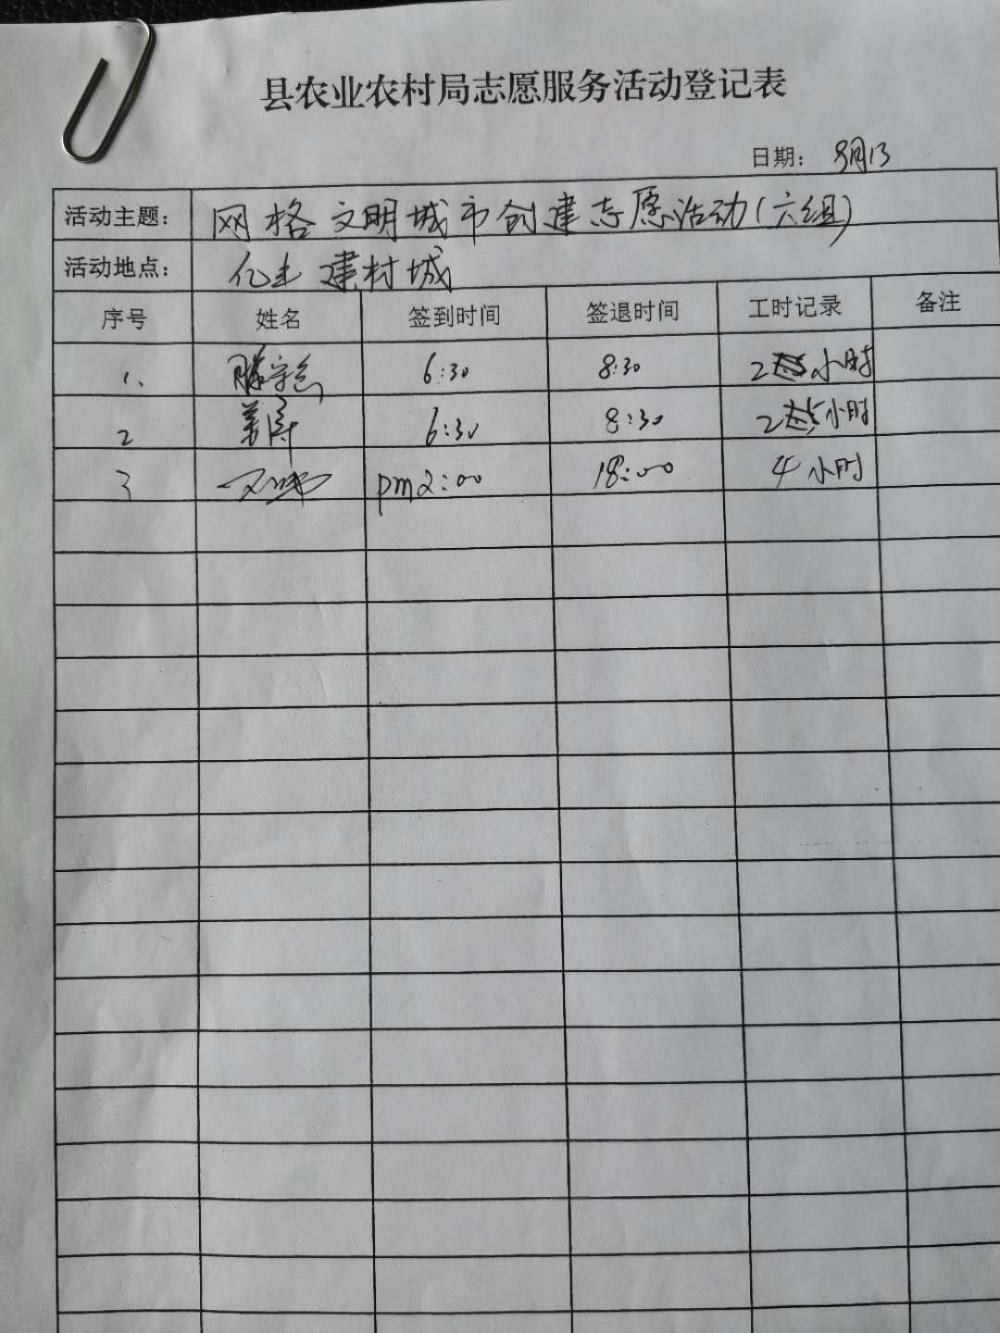 县农业农村局志愿服务活动登记表
日期： 9月13
活动主题： 网格文明城市创建志愿活动(六组)
活动地点： 亿丰建材城
序号 姓名 签到时间 签退时间 工时记录 备注
1、 6:30 8:30 2 小时
2 6:30 8:30 2 小时
3 pm2:00 18:00 4小时